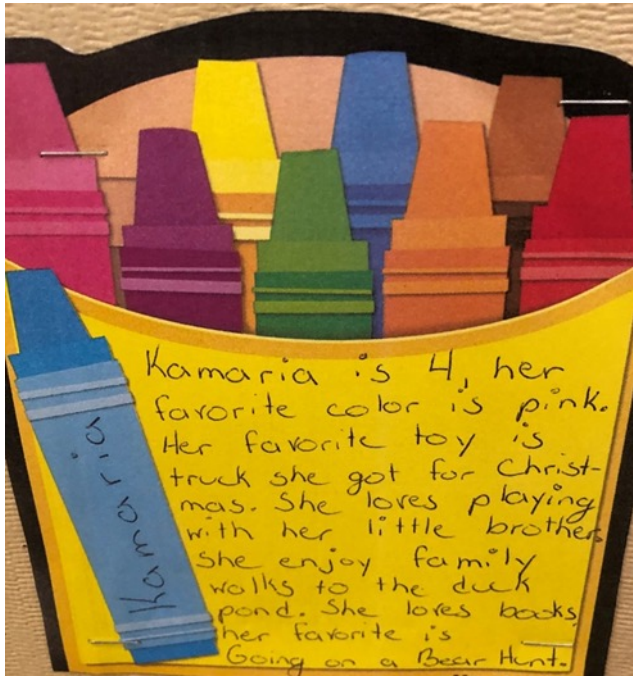 Kamaria is 4, her
favorite color is pink.
Her favorite toy is
truck she got for Christ-
mas. She loves playing
with her little brother,
she enjoy family
walks to the duck
pond. She loves books,
her favorite is
Going on a Bear Hunt.
Kamaria